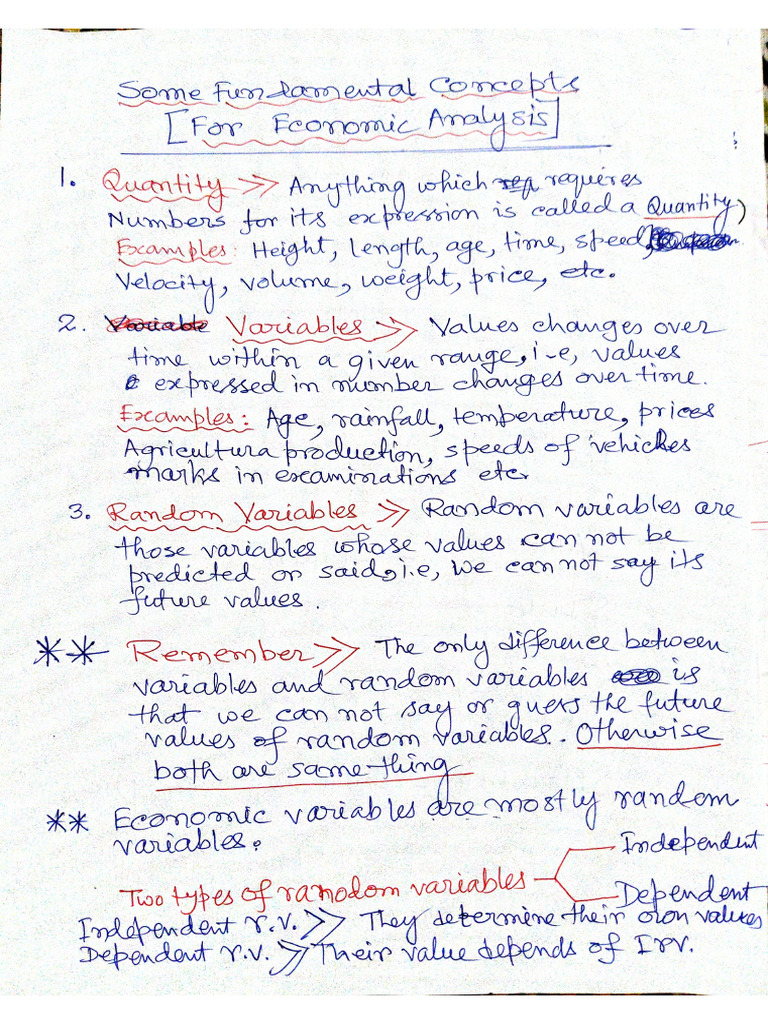 Some Fundamental Concepts
[For Economic Analysis]
1. Quantity >> Anything which requires
Numbers for its expression is called a Quantity)
Examples: Height, length, age, time, speed,
Velocity, volume, weight, price, etc.
2. Variable Variables >> Values changes over
time within a given range, i-e, values
expressed in number changes over time.
Examples: Age, rainfall, temperature, prices
Agricultura production, speeds of vehicles
marks in examinations etc.
3. Random Variables >> Random variables are
those variables whose values can not be
predicted or said, i.e, we can not say its
future values.
** Remember >> The only difference between
variables and random variables is
that we can not say or guess the future
values of random variables. Otherwise
both are same thing
** Economic variables are mostly random
variables.
Independent
Two types of ranodom variables
Dependent
Independent r.v. >> They determine their own values
Dependent r.v. >> Their value depends of Irv.